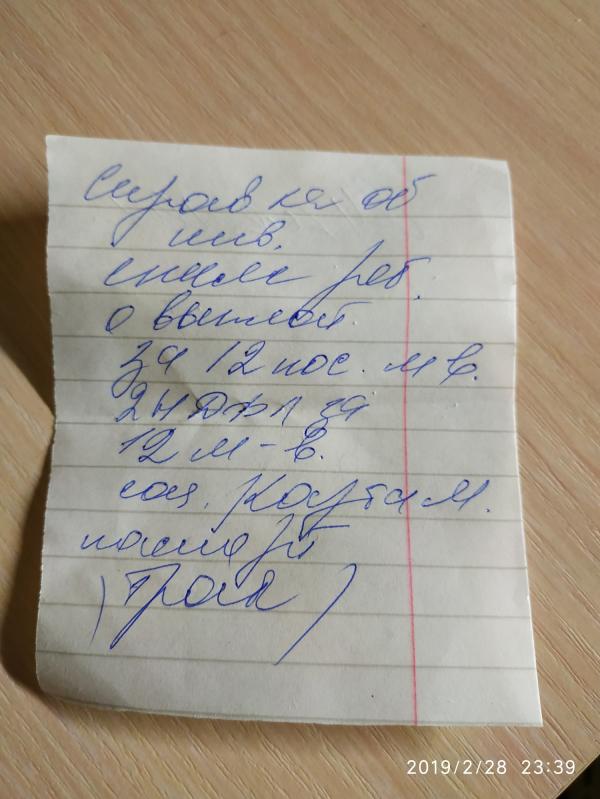 Справка об
инв.
ребр.
о выплат.
за 12 пос. м-в.
2НДФЛ за
12 м-в.
соц. карта м.
паспорт
2019/2/28 23:39